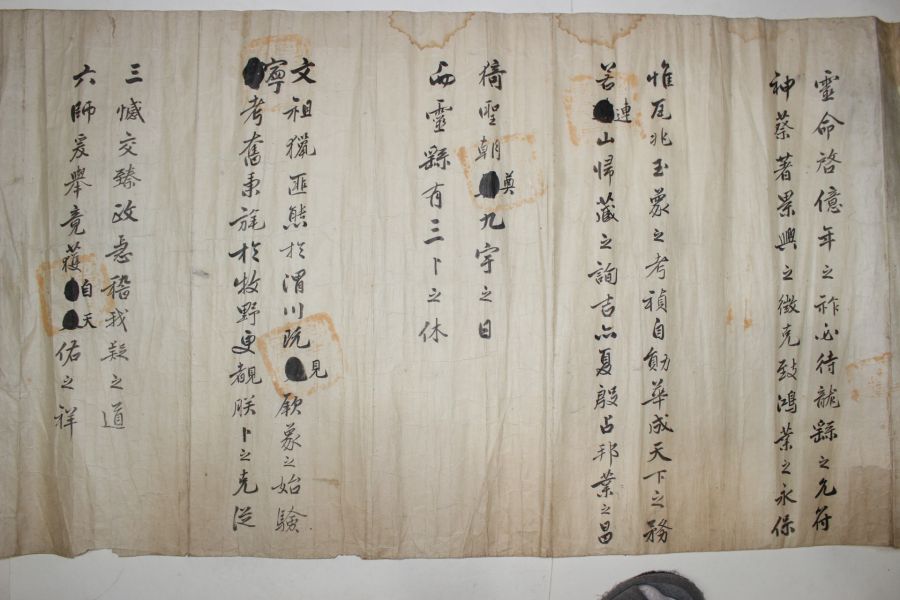 靈命啓億年之祚必待龍繇之允符
神蔡著累興之徵克致鴻業之永保
惟瓦兆玉象之考禎自勛華成天下之務
若連山歸藏之詢吉亦夏殷占邦業之昌
猗聖朝奠九宇之日
而靈繇有三卜之休
文祖獵匪熊於渭川既見厥象之始驗
寧考奮秉旄於牧野更覩朕卜之克從
三憾交臻政稽我疑之道
六師爰擧竟獲自天佑之祥